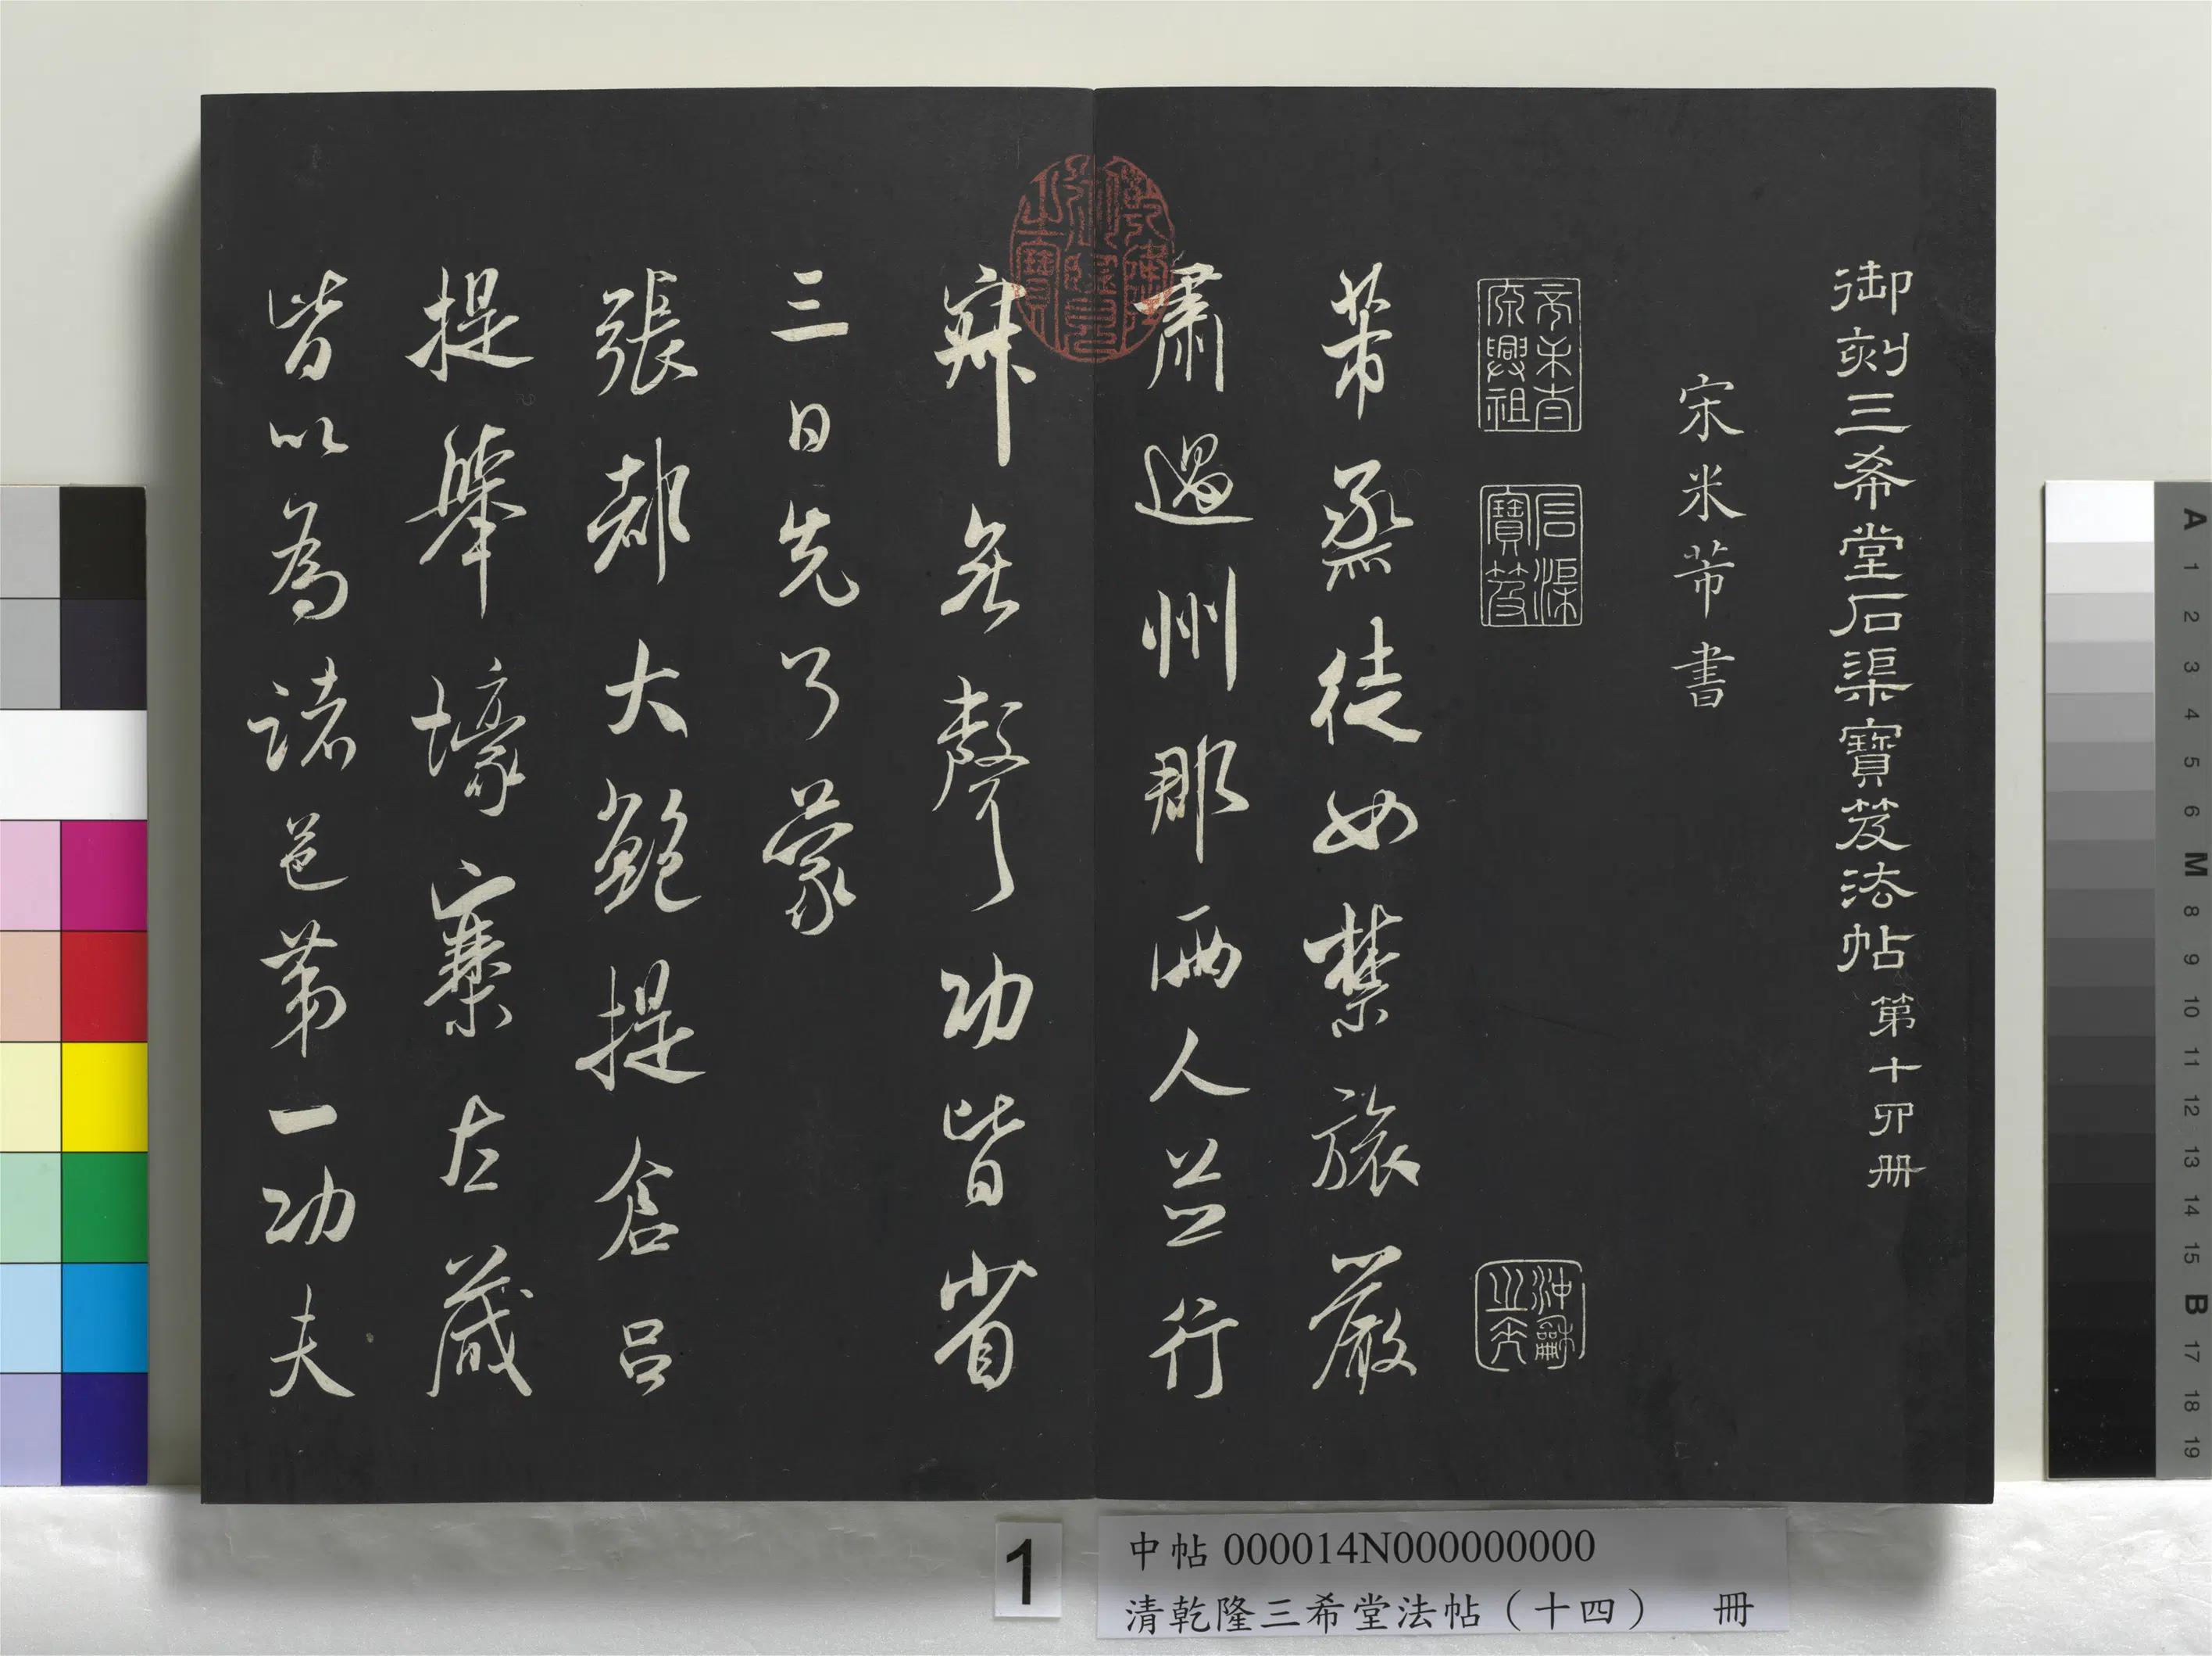 御刻三希堂石渠寶笈法帖第十四册
宋米芾書
石渠寶笈
芾烝徒如禁旅嚴
肅過州郡兩人並行
寂無聲功皆省
三日先了蒙
張都大鮑提倉呂
提舉壕寨左藏
皆以為諸邑第一功夫
1
中帖 000014N000000000
清乾隆三希堂法帖（十四） 冊
A 1 2 3 4 5 6 M 8 9 10 11 12 13 14 15 B 17 18 19